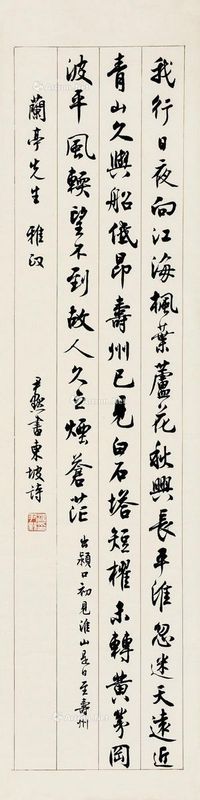 我行日夜向江海楓葉蘆花秋興長平淮忽迷天遠近
青山久與船低昂壽州已見白石塔短櫂未轉黃茅岡
波平風輭望不到故人久立煙蒼茫
出潁口初見淮山是日至壽州
蘭亭先生 雅政
尹默書東坡詩